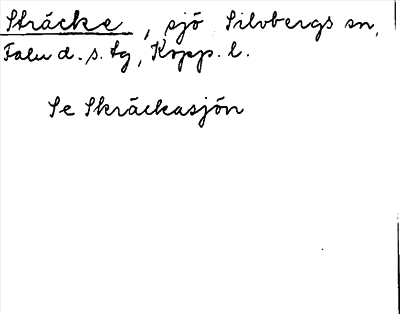 Sträcke, sjö Silvbergs sn,
Falu d. s. tg, Kopp. l.
Se Skräckasjön